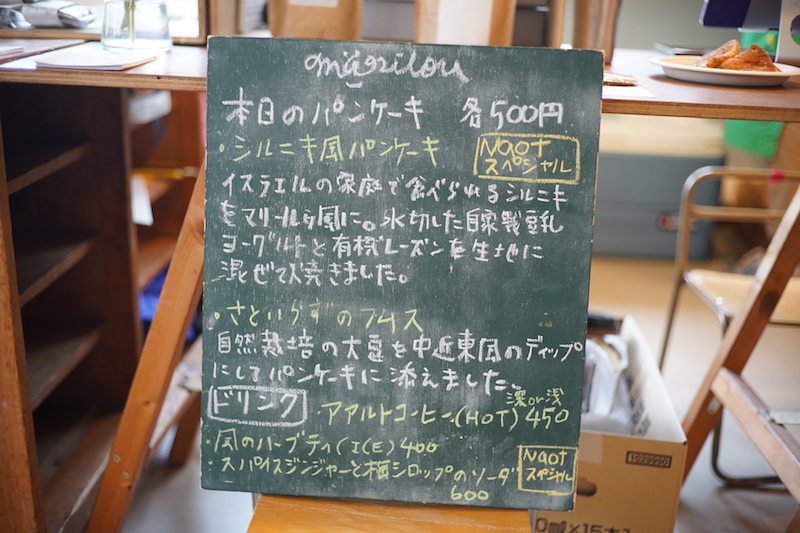 mārilou
本日のパンケーキ 各500円
・シルニキ風パンケーキ
Naot
スペシャル
イスラエルの家庭で食べられるシルニキ
をマリールゥ風に。水切した自家製豆乳
ヨーグルトと有機レーズンを生地に
混ぜて焼きました。
・さといらずのフムス
自然栽培の大豆を中近東風のディップ
にしてパンケーキに添えました。
ドリンク
深or浅
・アアルトコーヒー(HOT) 450
・風のハーブティ(ICE) 400
・スパイスジンジャーと梅シロップのソーダ
600
Naot
スペシャル